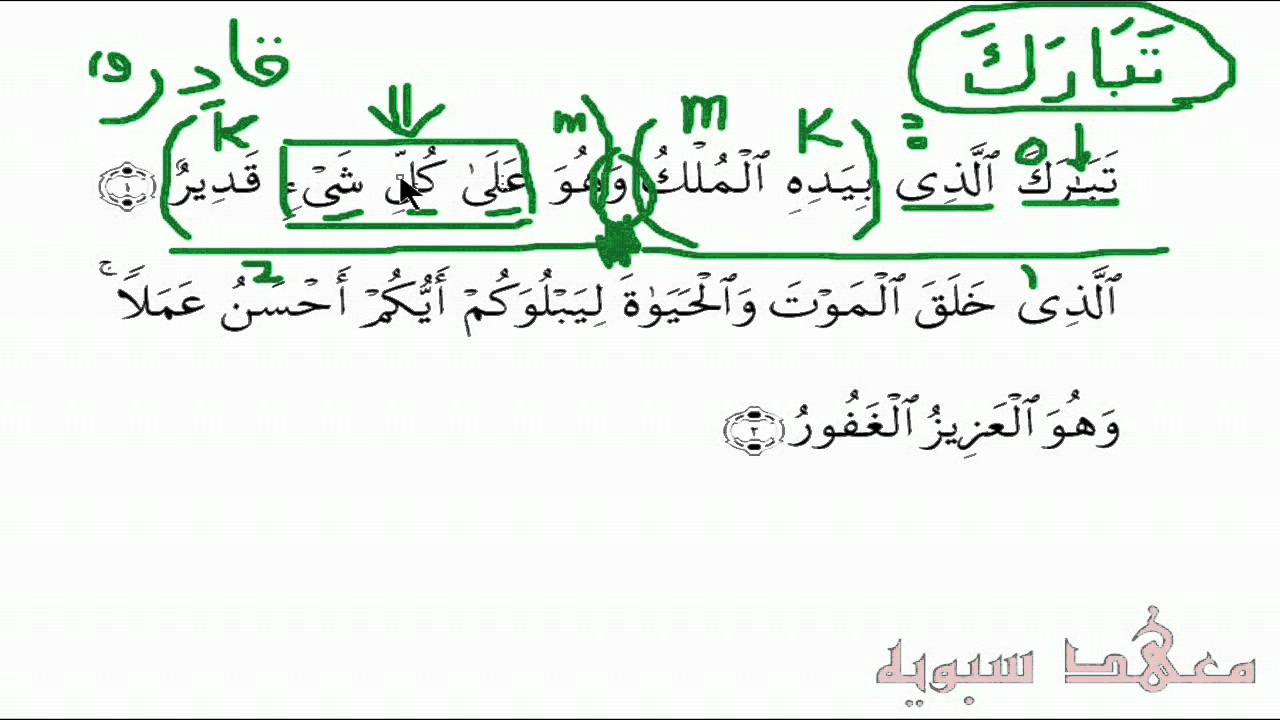 تَبَارَكَ
قادِر
و١
m K m K
٥
تَبَـٰرَكَ ٱلَّذِى بِيَدِهِ ٱلْمُلْكُ وَهُوَ عَلَىٰ كُلِّ شَىْءٍ قَدِيرٌ ١
١ 2
ٱلَّذِى خَلَقَ ٱلْمَوْتَ وَٱلْحَيَوٰةَ لِيَبْلُوَكُمْ أَيُّكُمْ أَحْسَنُ عَمَلًا ۚ
وَهُوَ ٱلْعَزِيزُ ٱلْغَفُورُ ٢
معهد سبويه